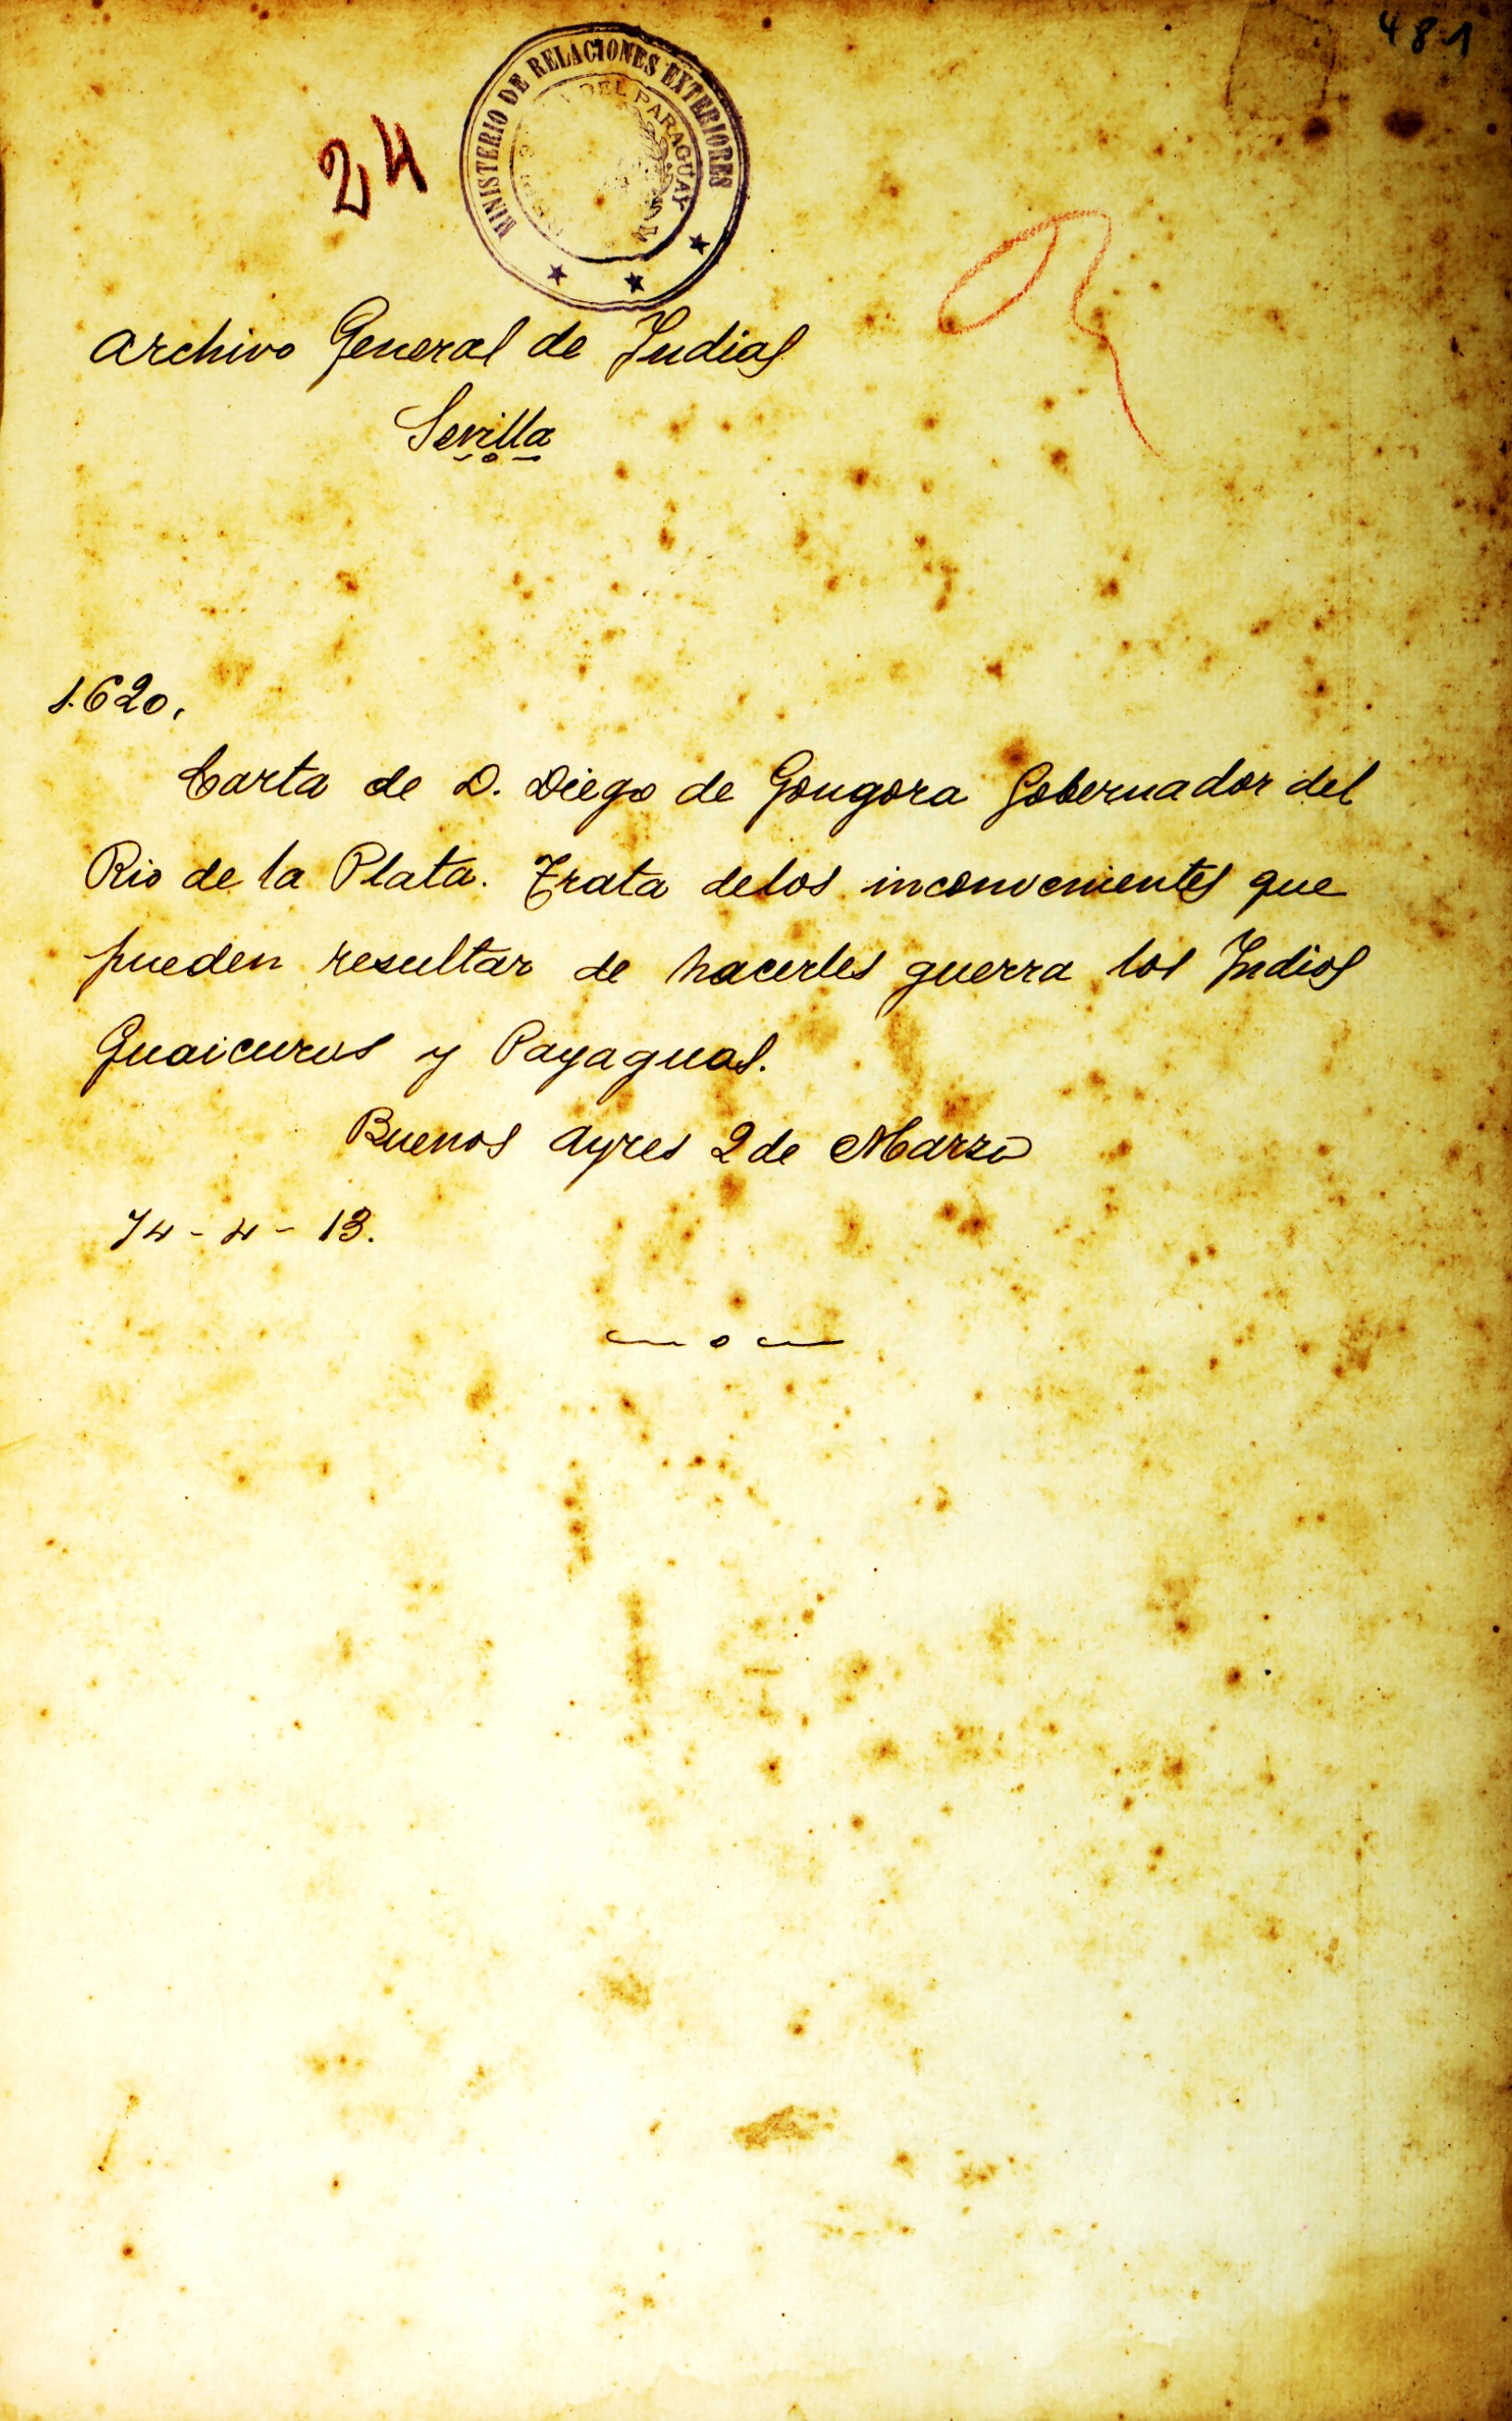 481
24
MINISTERIO DE RELACIONES EXTERIORES
DEL PARAGUAY
Archivo General de Indias
Sevilla
1.620.
Carta de D. Diego de Gongora Gobernador del
Rio de la Plata. Trata delos inconvenientes que
pueden resultar de hacerles guerra los Indios
Guaicurus y Payaguas.
Buenos Ayres 2 de Marzo
74-4-13.